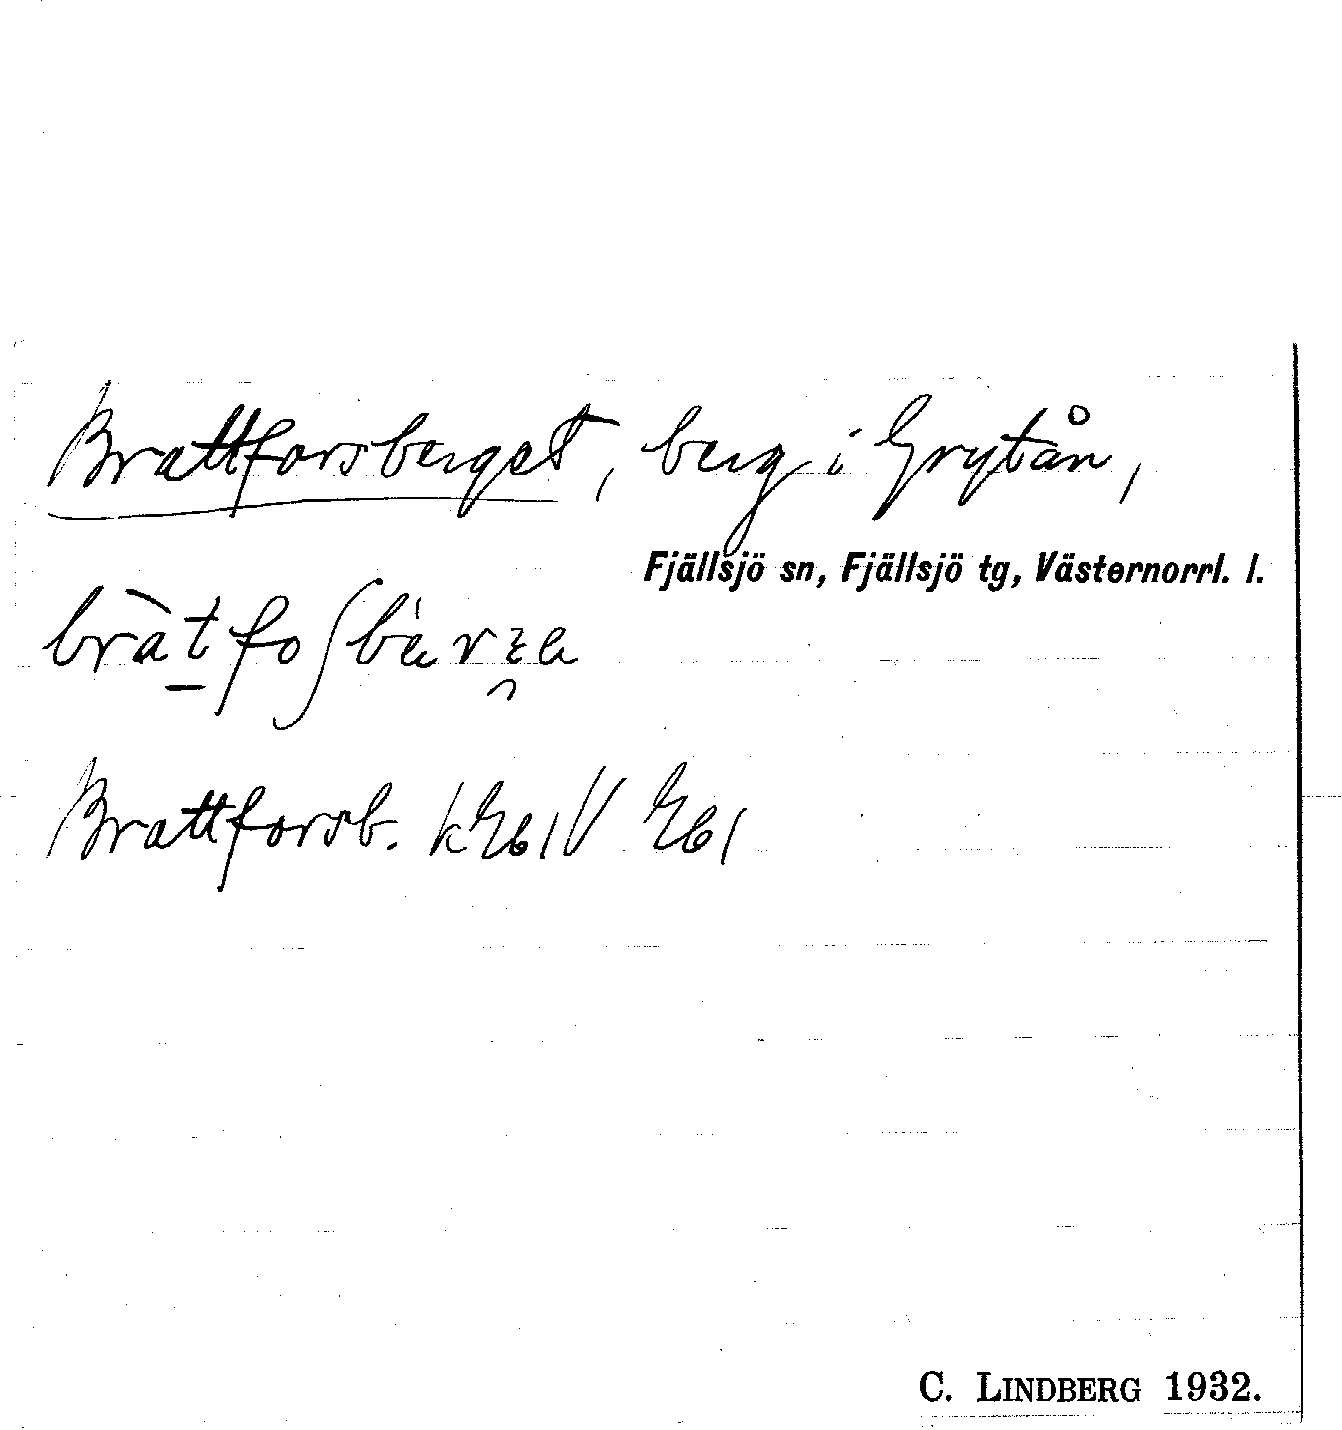 Brattforsberget, berg i Grytån,
Fjällsjö sn, Fjällsjö tg, Västernorrl. l.
Brattforsb.
C. LINDBERG 1932.